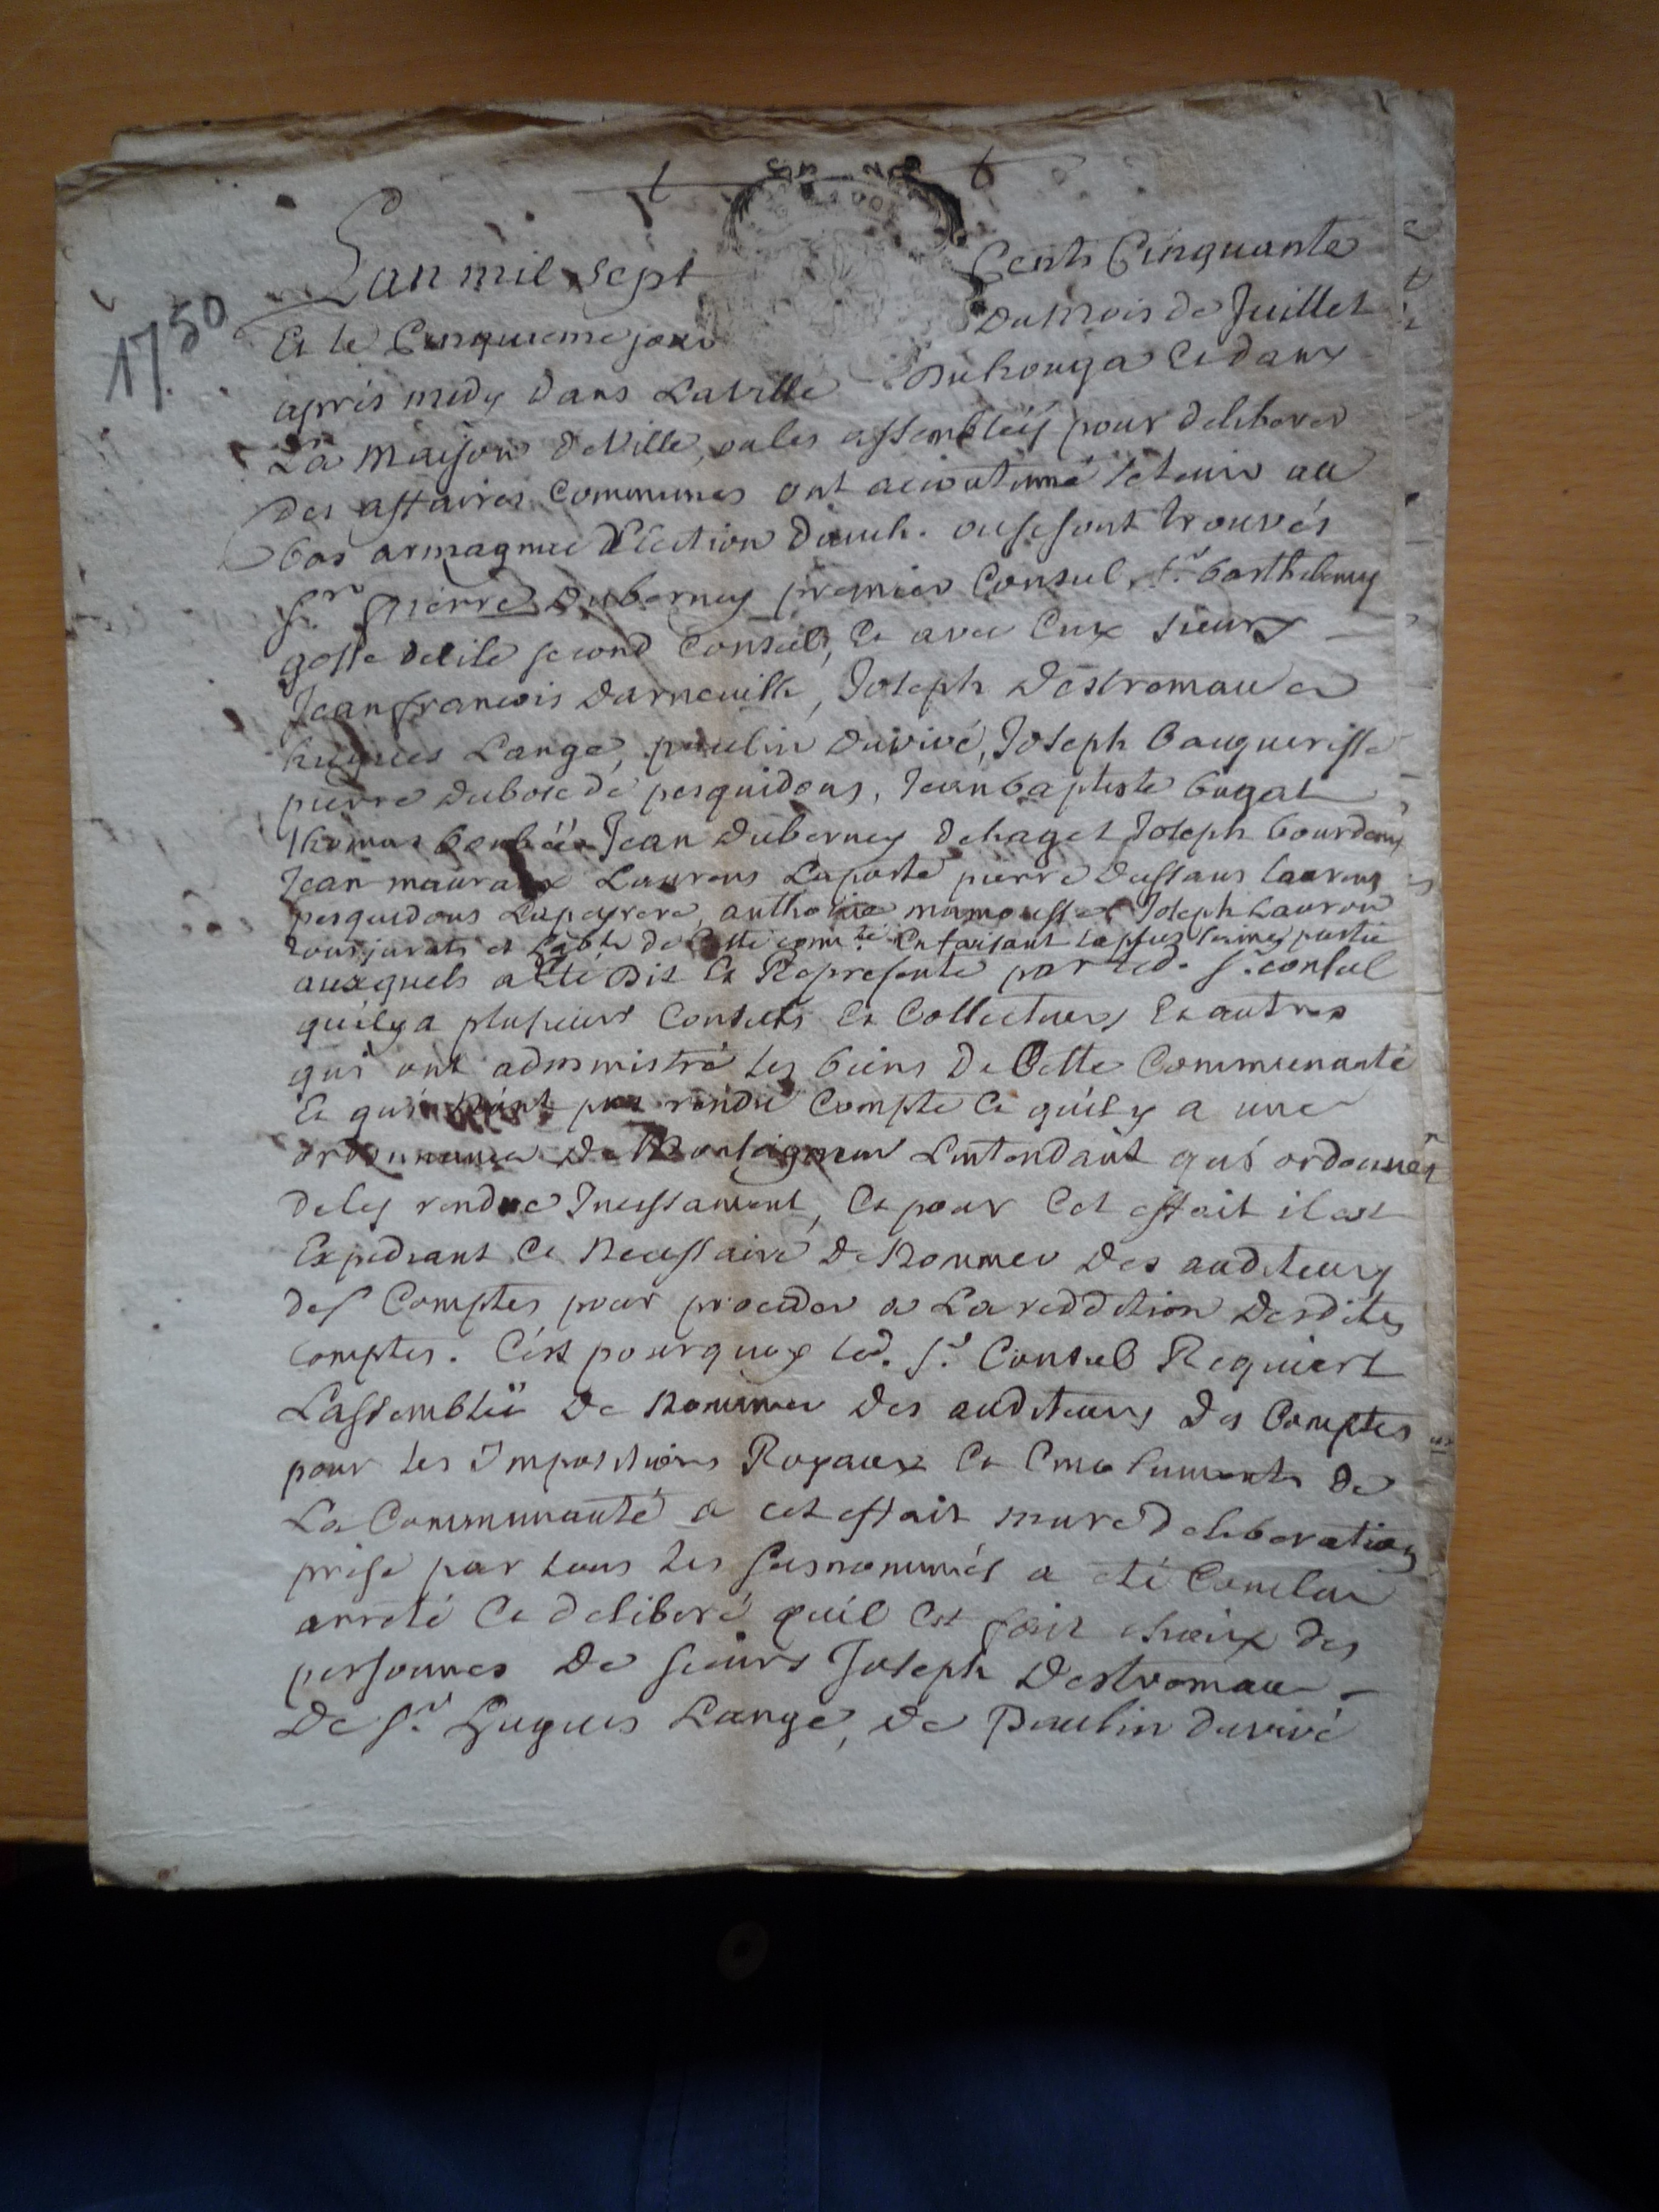 1750
Lan mil sept Cents Cinquante
Et le Cinquieme jour Du Mois de Juillet
apres midy Dans La Ville Du houga Et dans
La Maison de Ville, ou les assemblées pour deliberer
Des affaires Communes ont accoutumé se tenir au
bas armagnac Election Dauch. ou se sont trouvés
Sr. pierre Duberney premier Consul, Sr. barthelemy
gosse second Consul, Et avec Eux sieurs
Jean francois Darneuilh, Joseph Destromau
hugues Lange, paulin Duvivé, Joseph
pierre Dubosc de pesquidous, Jean baptiste bugat
Thomas Jean Duberney de haget Joseph
Jean Laurens Laporte pierre Dussaus Laurens
pesquidous Lapeyrere, Joseph Lauron
tous jurats et de Cette comté. En faisant la plus partie
auxquels a Eté Dit Et Representé par led. Sr. consul
quil y a plusieurs Consuls Et Collecteurs Et autres
qui ont administré les biens De Cette Communauté
Et qui nont pas rendu Compte Et quil y a une
ordonnance De Monseigneur Lintendant qui ordonne
de les rendre Incessament, Et pour Cet effait il est
Expediant Et Necessaire De Nommer Des auditeurs
des Comptes pour proceder a La reddition Desdites
comptes. C'est pourquoy led. Sr. Consul Requiert
Lassemblée De Nommer Des auditeurs Des Comptes
pour les Impositions Royaux Et Emoluments de
La Communauté a cet effait mure deliberation
prise par tous les susnommés a eté Conclu
arreté Et deliberé quil Est fait choix des
personnes De sieurs Joseph Destromau
De Sr. hugues Lange, De Paulin duvivé